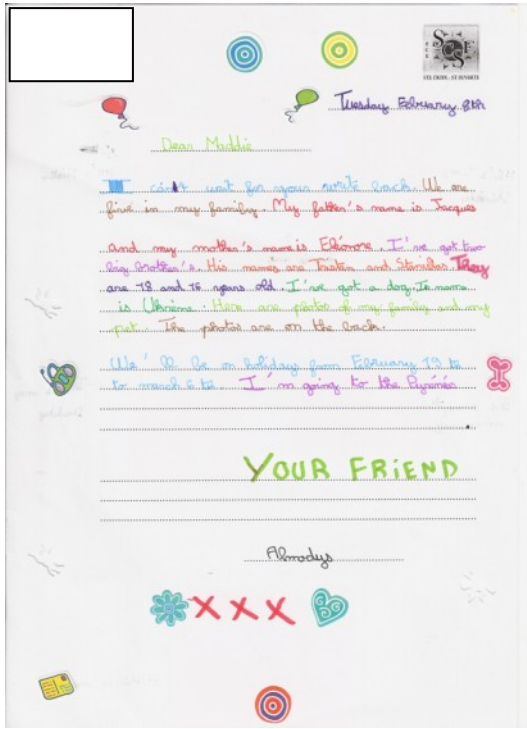 SCS
STE CROIX - ST EUVERTE
Tuesday February 8th
Dear Maddie
I can't wait for your write back. We are
five in my family. My father's name is Jacques
and my mother's name is Eléonore. I've got two
big brother's. His names are Tristan and Stanislas. They
are 18 and 16 years old. I've got a dog. Is name
is Ukrène. Here are photos of my family and my
pet. The photos are on the back.
We'll be on holiday from February 19 to
to march 6 to. I'm going to the Pyrénées
YOUR FRiEND
Almodys
XXX